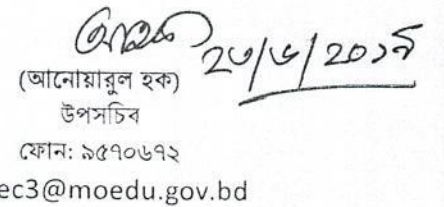 ২৩/৬/২০১৯
(আনোয়ারুল হক)
উপসচিব
ফোন: ৯৫৭০৬৭২
ec3@moedu.gov.bd